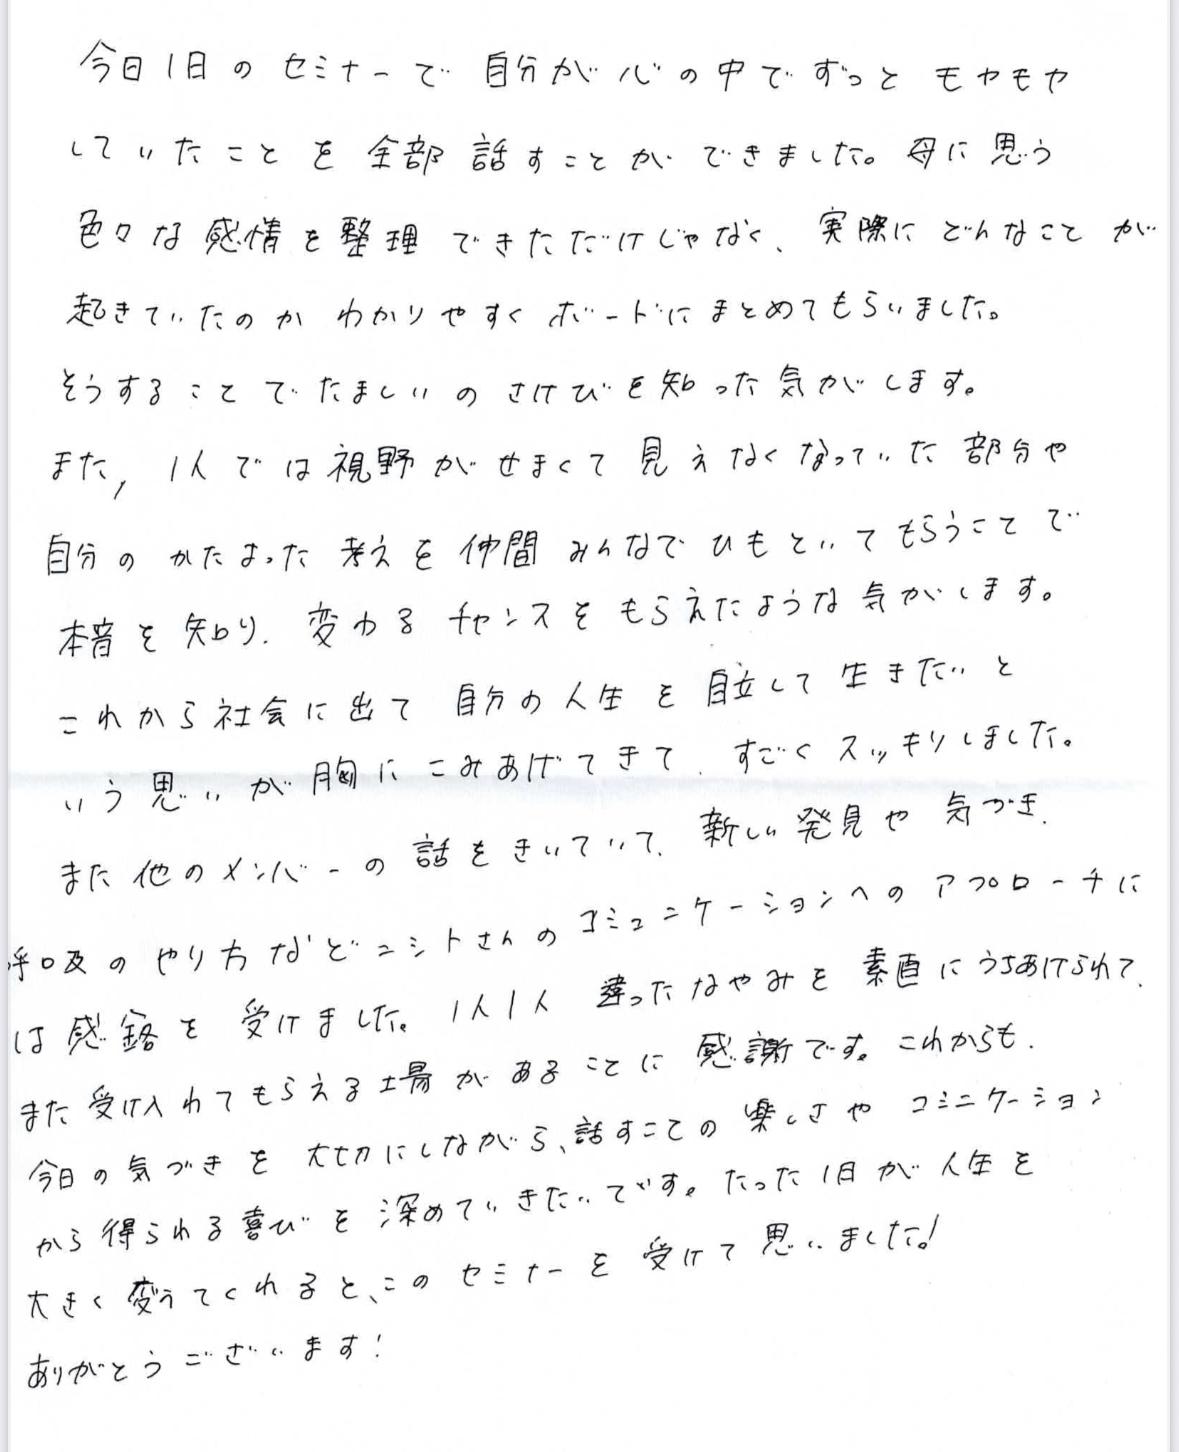 今日1日のセミナーで自分が心の中でずっとモヤモヤ
していたことを全部話すことができました。母に思う
色々な感情を整理できただけじゃなく、実際にどんなことが
起きていたのかわかりやすくボードにまとめてもらいました。
そうすることでたましいのさけびを知った気がします。
また,1人では視野がせまくて見えなくなっていた部分や
自分のかたまった考えを仲間みんなでひもといてもらうことで
本音を知り、変わるチャンスをもらえたような気がします。
これから社会に出て自分の人生を自立して生きたいと
いう思いが胸にこみあげてきて、すごくスッキリしました。
また他のメンバーの話をきいていて、新しい発見や気づき、
呼吸のやり方などニシトさんのコミュニケーションへのアプローチに
は感銘を受けました。1人1人違ったなやみを素直にうちあけられて、
また受け入れてもらえる場があることに感謝です。これからも、
今日の気づきを大切にしながら、話すことの楽しさやコミニケーション
から得られる喜びを深めていきたいです。たった1日が人生を
大きく変えてくれると、このセミナーを受けて思いました!
ありがとうございます!